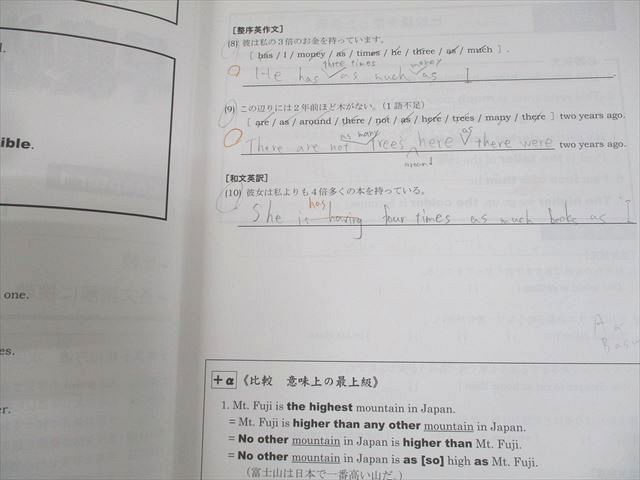 l.
ible.
one.
es.
er.
[整序英作文]
(8) 彼は私の3倍のお金を持っています。
[ has / I / money / as / times / he / three / as / much ] .
three times money
He has as much as I
(9) この辺りには2年前ほど木がない。(1語不足)
[ are / as / around / there / not / as / here / trees / many / there ] two years ago.
as many as
There are not trees here there were two years ago.
around
[和文英訳]
(10) 彼女は私よりも4倍多くの本を持っている。
has
She is having four times as much books as I
+α 《比較 意味上の最上級》
1. Mt. Fuji is the highest mountain in Japan.
= Mt. Fuji is higher than any other mountain in Japan.
= No other mountain in Japan is higher than Mt. Fuji.
= No other mountain in Japan is as [so] high as Mt. Fuji.
(富士山は日本で一番高い山だ。)